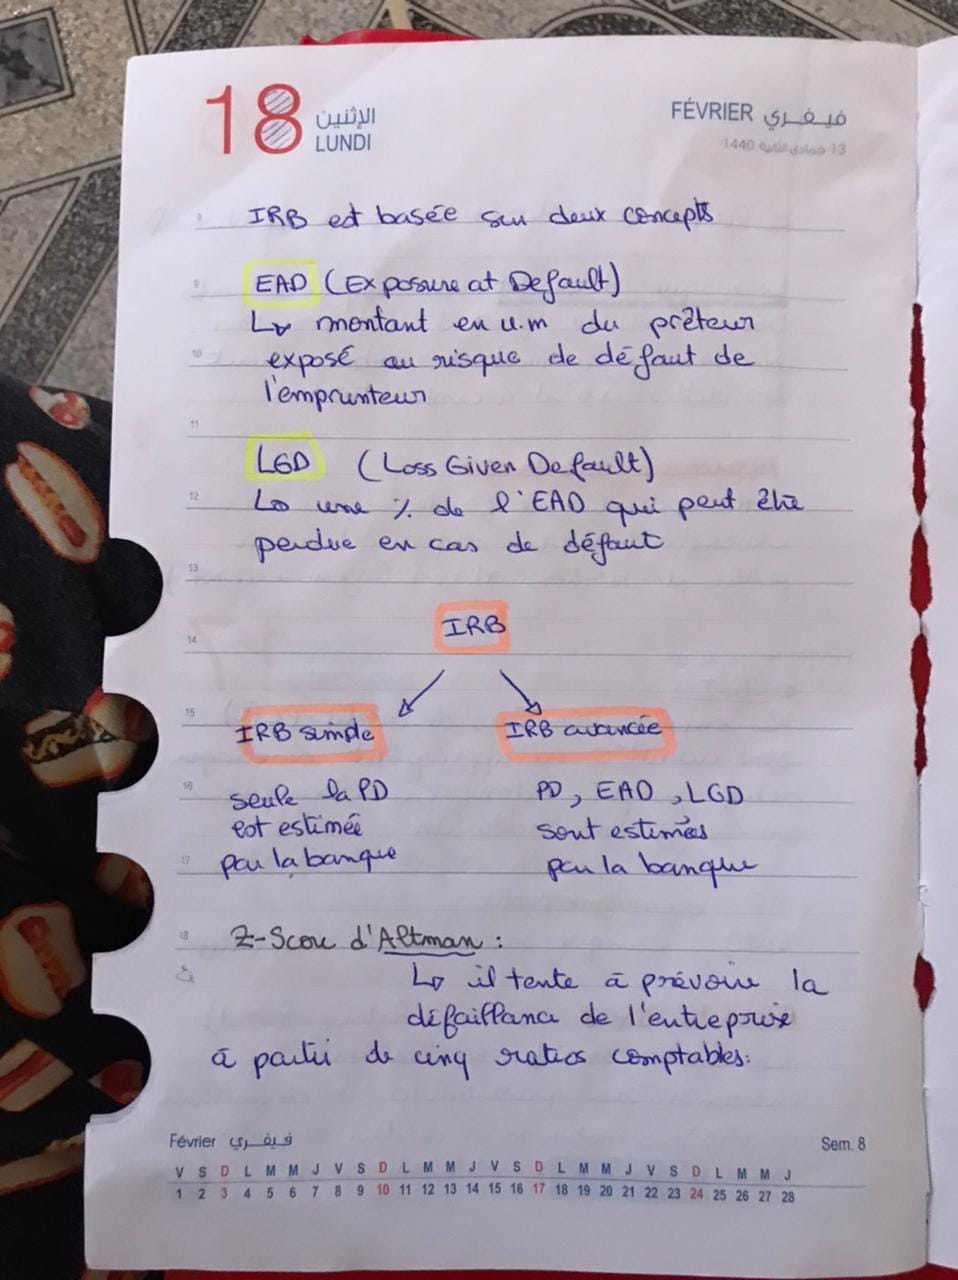 18 الإثنين
LUNDI
FÉVRIER فيفري
13 جمادى الثانية 1440
8 IRB est basée sur deux concepts
9 EAD (Exposure at Default)
↳ montant en u.m du prêteur
10 exposé au risque de défaut de
l'emprunteur
11
LGD (Loss Given Default)
12 ↳ une % de l'EAD qui peut être
perdue en cas de défaut
13
14 IRB
15 IRB simple IRB avancée
16 seule la PD PD, EAD, LGD
est estimée sont estimées
17 par la banque par la banque
18 Z-Score d'Altman :
↳ il tente à prévoir la
défaillance de l'entreprise
à partir de cinq ratios comptables.
Février فيفري Sem. 8
V S D L M M J V S D L M M J V S D L M M J V S D L M M J
1 2 3 4 5 6 7 8 9 10 11 12 13 14 15 16 17 18 19 20 21 22 23 24 25 26 27 28